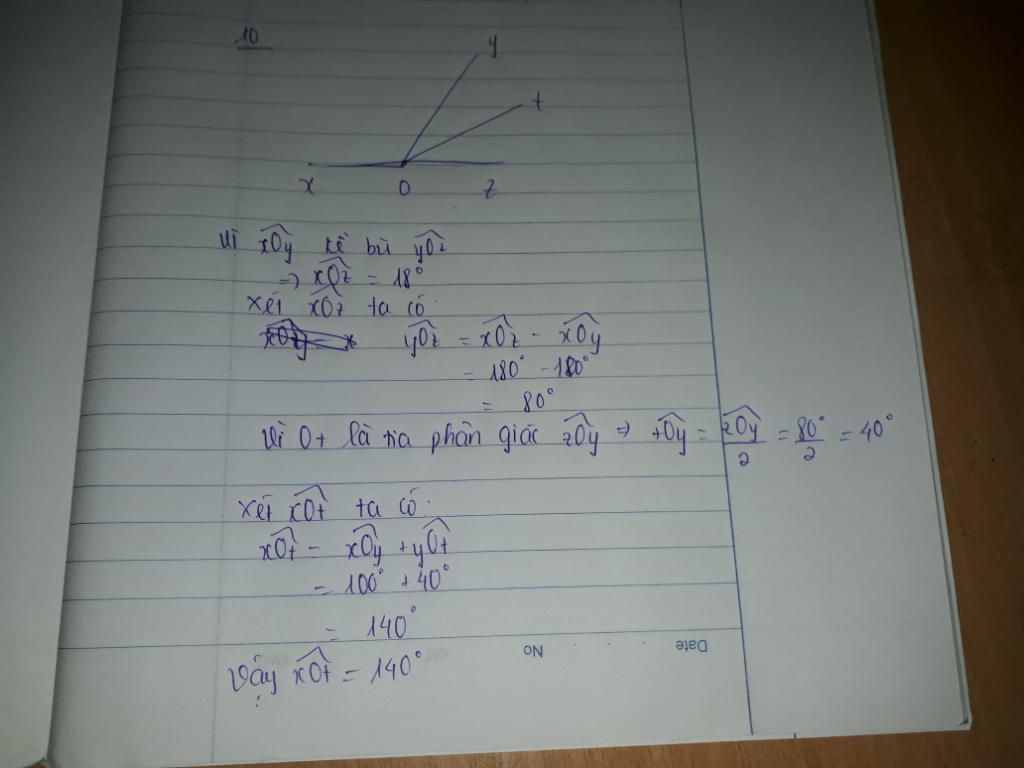 10
y
t
x O z
Vì xOy kề bù yOz
=> xOz = 18°
Xét xOz ta có:
yOz = xOz - xOy
= 180° - 100°
= 80°
Vì Ot là tia phân giác zOy => tOy = zOy/2 = 80°/2 = 40°
Xét xOt ta có:
xOt = xOy + yOt
= 100° + 40°
= 140°
Date No
Vậy xOt = 140°